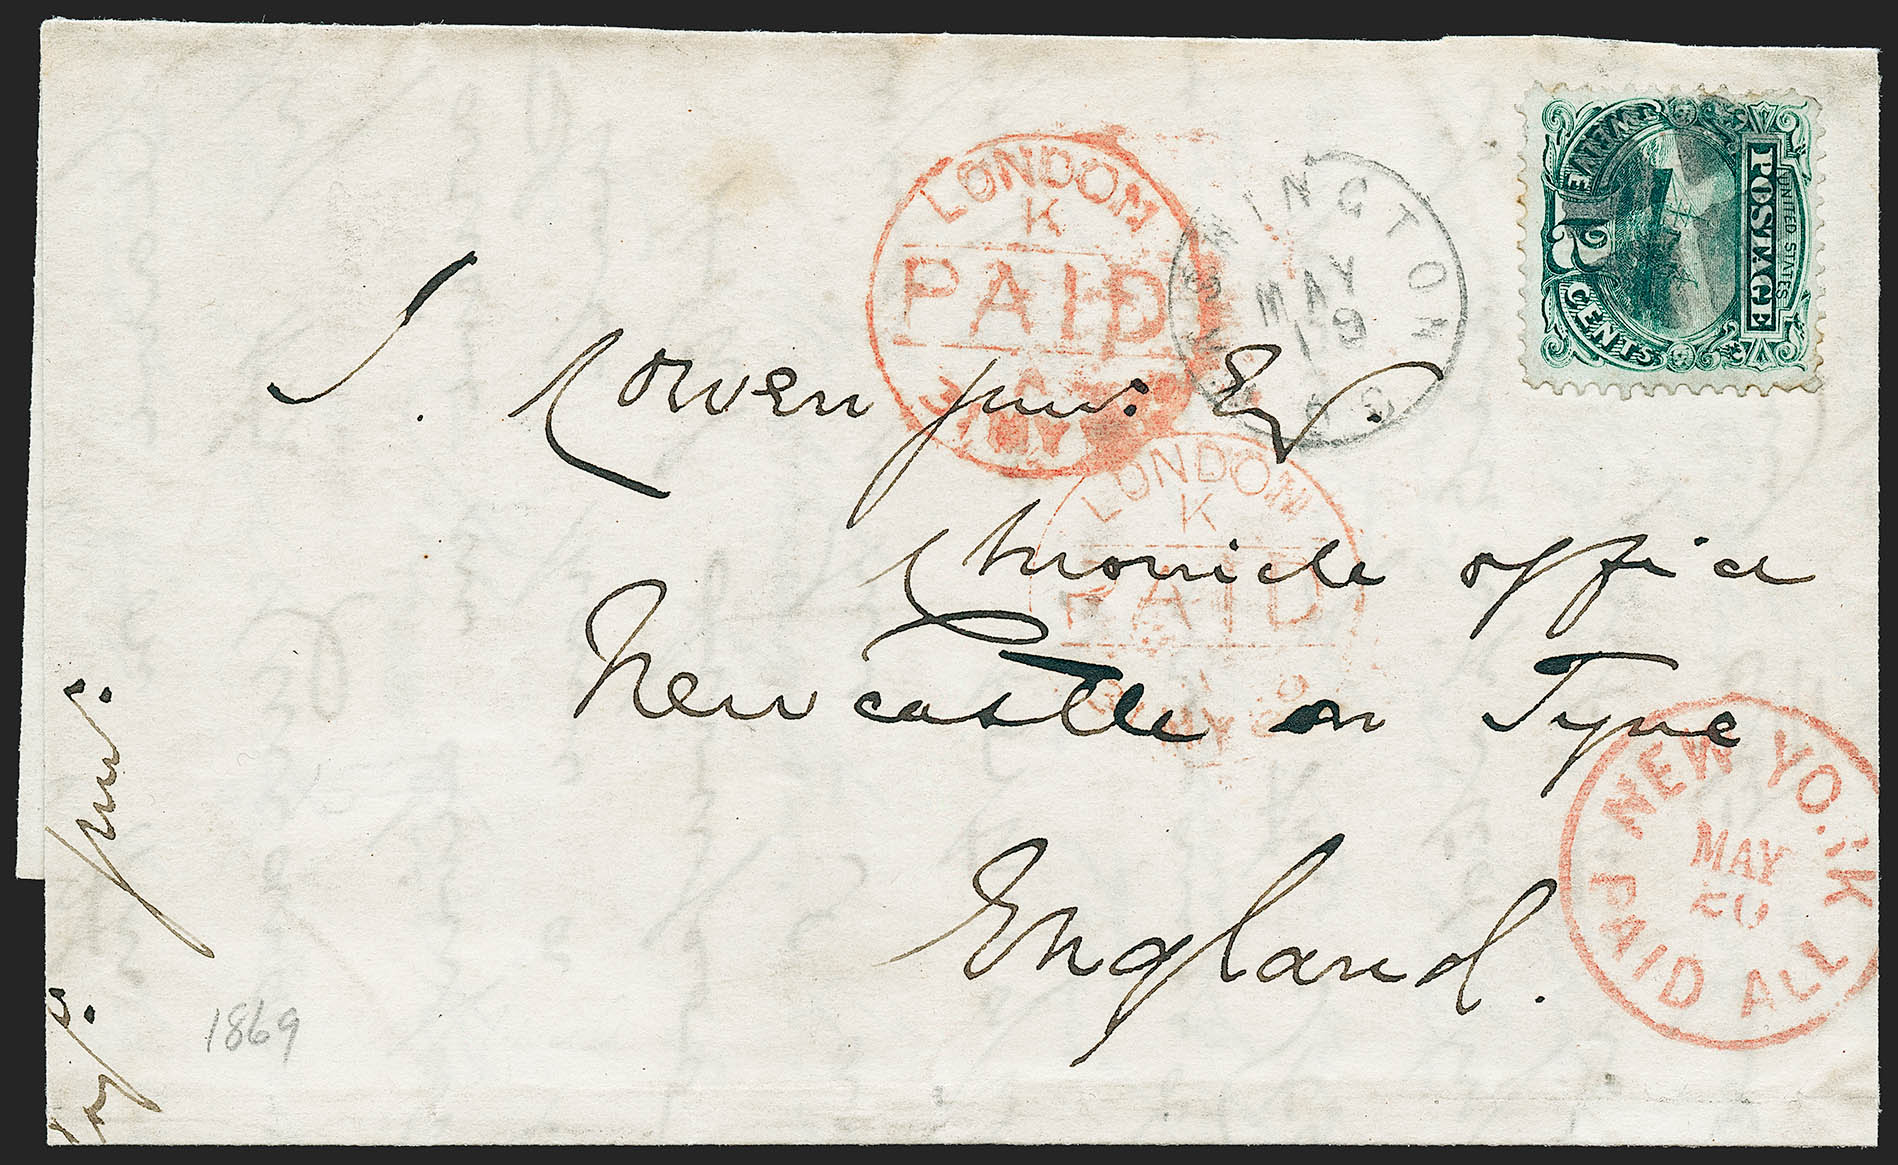 UNITED STATES
POSTAGE
TWELVE
12
CENTS
LONDON
K
PAID
MY
WASHINGTON
MAY
19
J. Cowen junr: Esq.
LONDON
K
PAID
MY
Chronicle office
Newcastle on Tyne
England.
NEW YORK
MAY
20
PAID ALL
junr:
1869